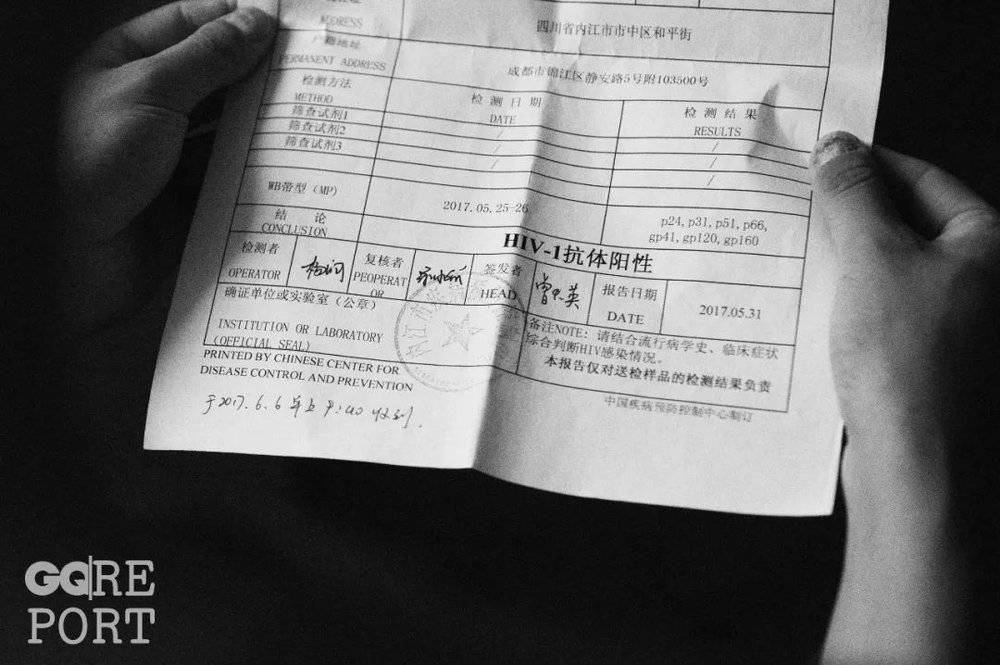 ADDRESS
四川省内江市市中区和平街
户籍地址
PERMANENT ADDRESS
成都市锦江区静安路5号附103500号
检测方法
METHOD
检 测 日 期
DATE
检 测 结 果
RESULTS
筛查试剂1
/
/
筛查试剂2
/
筛查试剂3
/
/
WB带型（MP）
2017.05.25-26
p24, p31, p51, p66,
gp41, gp120, gp160
结 论
CONCLUSION
HIV-1抗体阳性
检测者
OPERATOR
复核者
PEOPERAT
OR
签发者
HEAD
报告日期
DATE
2017.05.31
确证单位或实验室（公章）
INSTITUTION OR LABORATORY
(OFFICIAL SEAL)
备注NOTE: 请结合流行病学史、临床症状
综合判断HIV感染情况。
本报告仅对送检样品的检测结果负责
PRINTED BY CHINESE CENTER FOR
DISEASE CONTROL AND PREVENTION
中国疾病预防控制中心制订
于2017.6.6
收到.
GQ RE
PORT